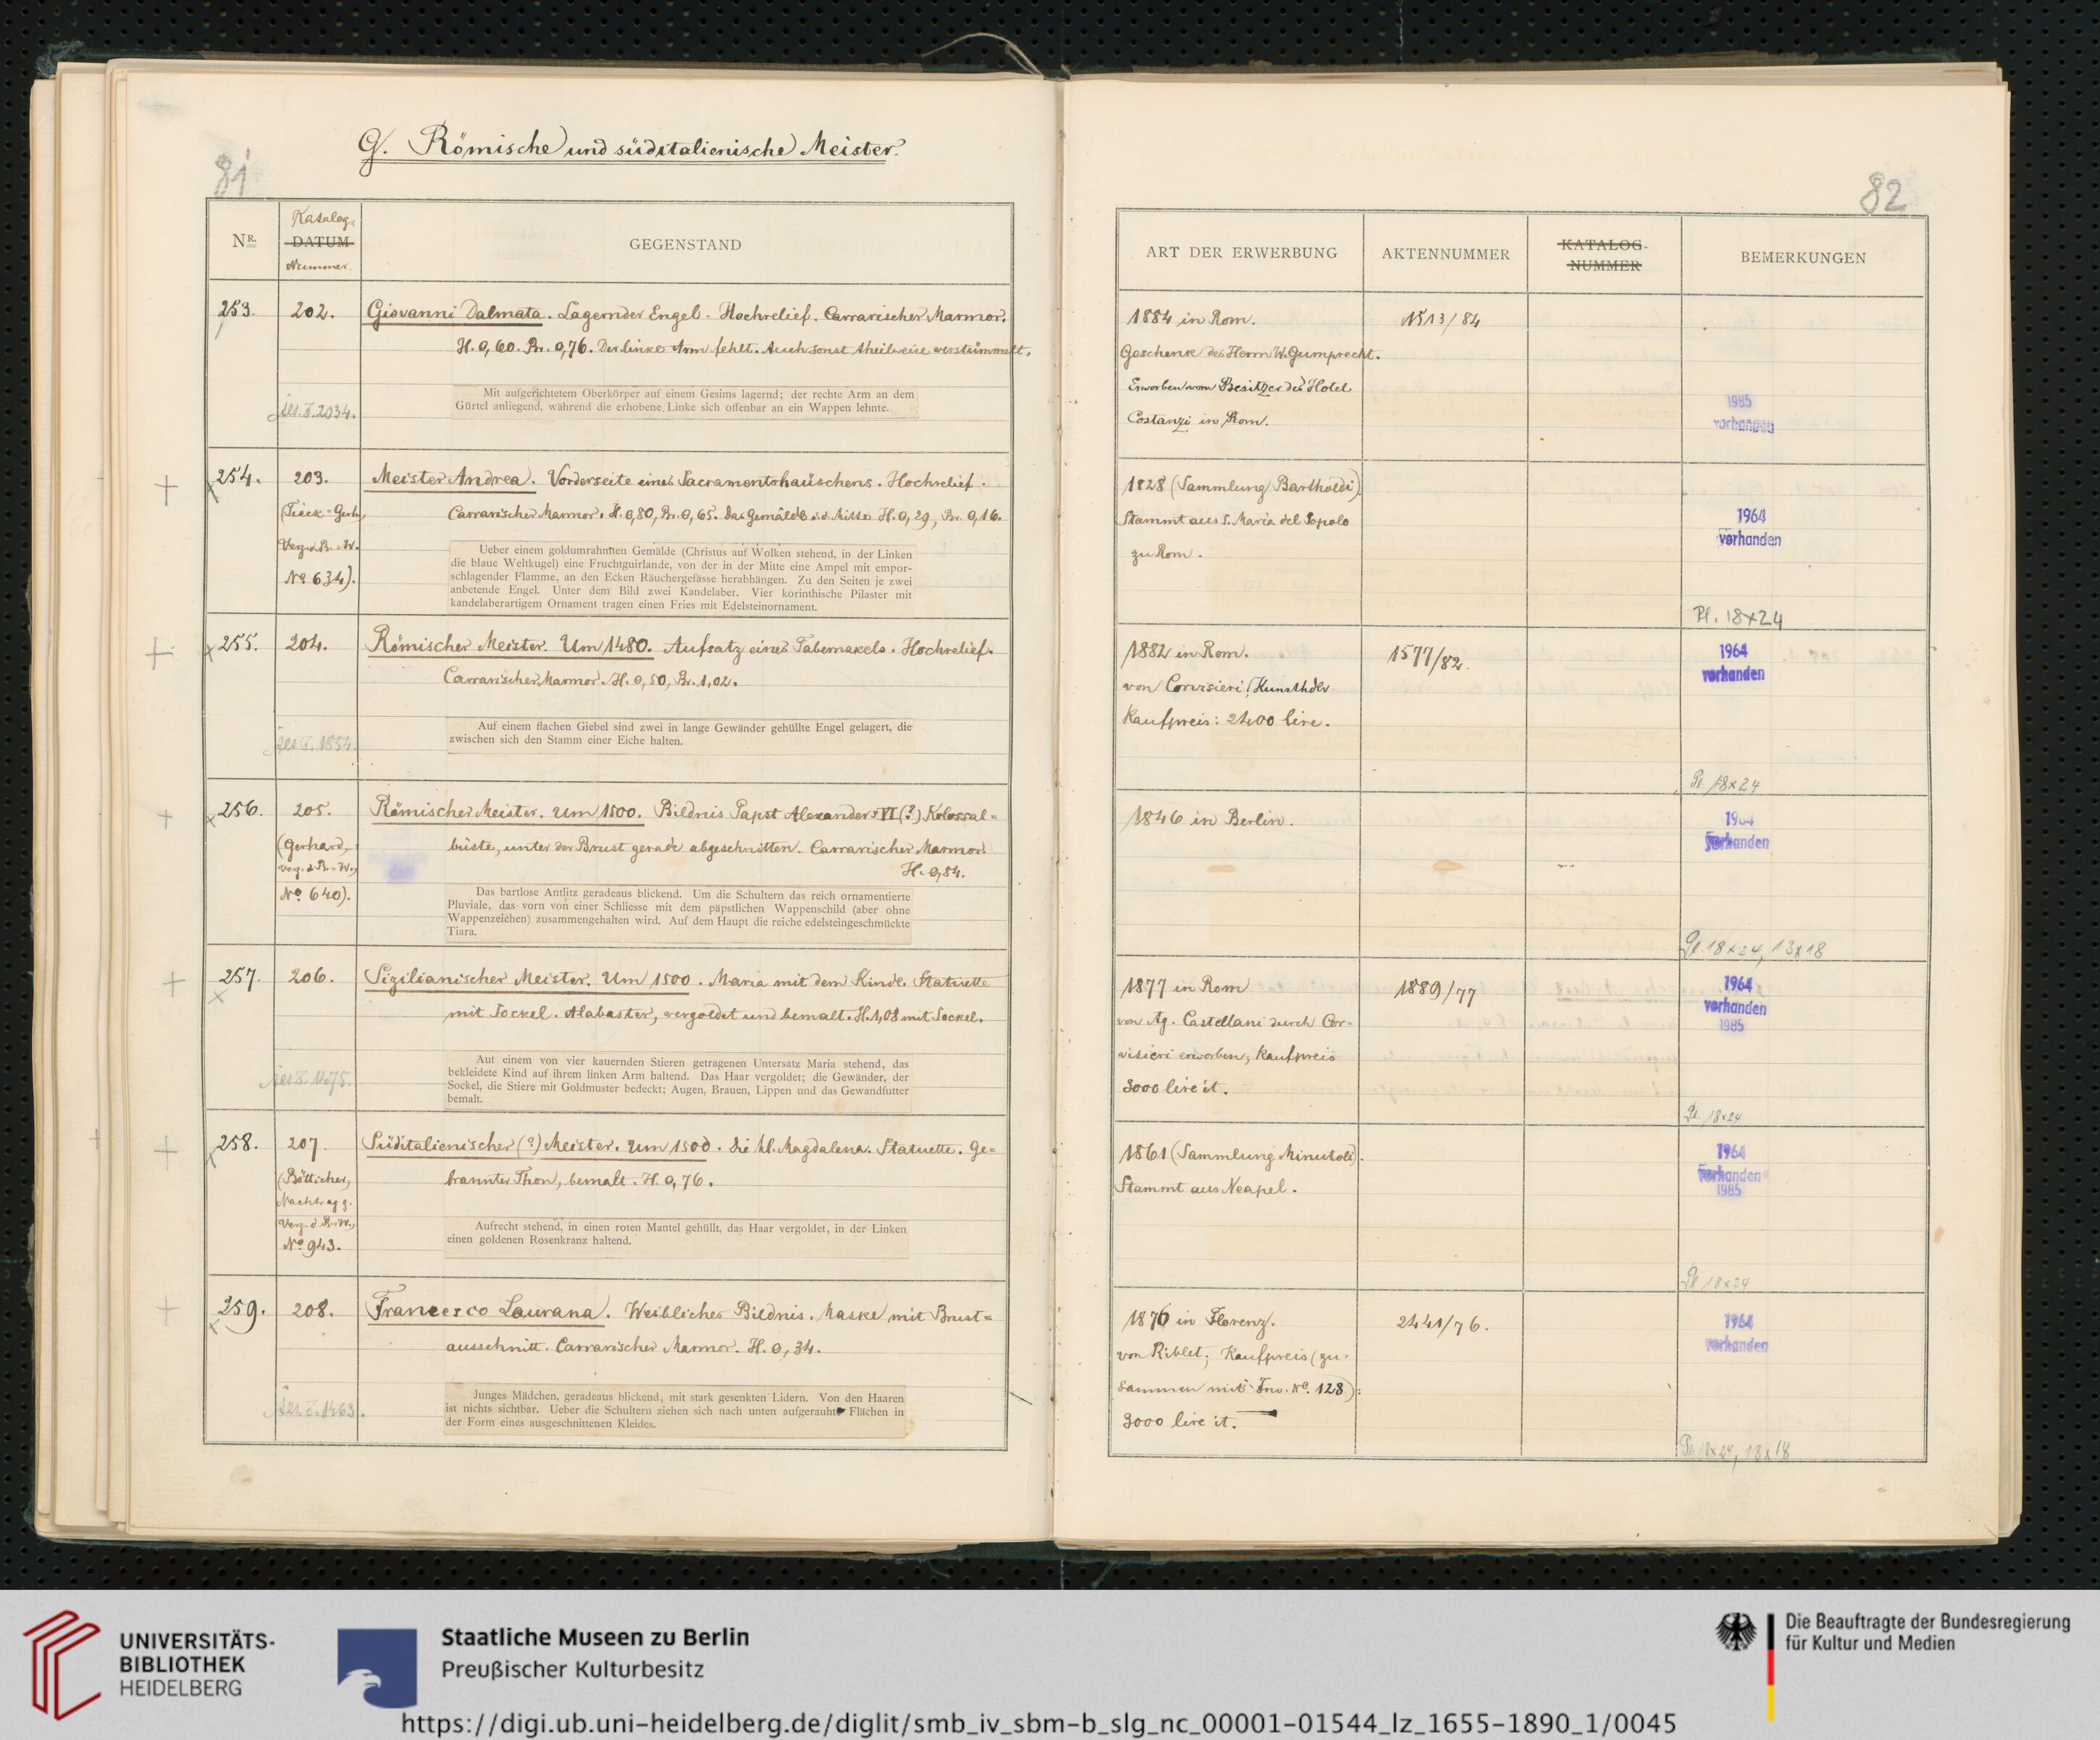 G. Römische und süditalienische Meister.
81
NR.
Katalog-
DATUM
Nummer.
GEGENSTAND
253.
202.
Giovanni Dalmata. Lagernder Engel. Hochrelief. Carrarischer Marmor.
H. 0,60. Br. 0,76. Der linke Arm fehlt. Auch sonst theilweise verstümmelt.
Mit aufgerichtetem Oberkörper auf einem Gesims lagernd; der rechte Arm an dem
Gürtel anliegend, während die erhobene Linke sich offenbar an ein Wappen lehnte.
jes. T. 2034.
254.
203.
Meister Andrea. Vorderseite eines Sacramentshäuschens. Hochrelief.
(Tieck-Gerh.,
Carrarischer Marmor. H. 0,80, Br. 0,65. Das Gemälde i.d. Mitte H. 0,29, Br. 0,16.
Verz. d. B.-W.
No 634).
Ueber einem goldumrahmten Gemälde (Christus auf Wolken stehend, in der Linken
die blaue Weltkugel) eine Fruchtguirlande, von der in der Mitte eine Ampel mit empor-
schlagender Flamme, an den Ecken Räuchergefässe herabhängen. Zu den Seiten je zwei
anbetende Engel. Unter dem Bild zwei Kandelaber. Vier korinthische Pilaster mit
kandelaberartigem Ornament tragen einen Fries mit Edelsteinornament.
255.
204.
Römischer Meister. Um 1480. Aufsatz eines Tabernakels. Hochrelief.
Carrarischer Marmor. H. 0,50, Br. 1,02.
Auf einem flachen Giebel sind zwei in lange Gewänder gehüllte Engel gelagert, die
zwischen sich den Stamm einer Eiche halten.
jes. T. 1854.
256.
205.
Römischer Meister. Um 1500. Bildnis Papst Alexanders VI (?) Kolossal-
(Gerhard,
büste, unter der Brust gerade abgeschnitten. Carrarischer Marmor.
Verz. d. B.-W.,
H. 0,84.
No 640).
Das bartlose Antlitz geradeaus blickend. Um die Schultern das reich ornamentierte
Pluviale, das vorn von einer Schliesse mit dem päpstlichen Wappenschild (aber ohne
Wappenzeichen) zusammengehalten wird. Auf dem Haupt die reiche edelsteingeschmückte
Tiara.
257.
206.
Sizilianischer Meister. Um 1500. Maria mit dem Kinde. Statuette
mit Sockel. Alabaster, vergoldet und bemalt. H. 1,08 mit Sockel.
Auf einem von vier kauernden Stieren getragenen Untersatz Maria stehend, das
bekleidete Kind auf ihrem linken Arm haltend. Das Haar vergoldet; die Gewänder, der
Sockel, die Stiere mit Goldmuster bedeckt; Augen, Brauen, Lippen und das Gewandfutter
bemalt.
258.
207.
Süditalienischer (?) Meister. Um 1500. Die hl. Magdalena. Statuette. Ge-
(Bötticher,
brannter Thon, bemalt. H. 0,76.
Nachtrag z.
Verz. d. B.-W.,
No 943.
Aufrecht stehend, in einen roten Mantel gehüllt, das Haar vergoldet, in der Linken
einen goldenen Rosenkranz haltend.
259.
208.
Francesco Laurana. Weibliches Bildnis. Maske mit Brust-
ausschnitt. Carrarischer Marmor. H. 0,34.
Junges Mädchen, geradeaus blickend, mit stark gesenkten Lidern. Von den Haaren
ist nichts sichtbar. Ueber die Schultern ziehen sich nach unten aufgerauhte Flächen in
der Form eines ausgeschnittenen Kleides.
jes. T. 1463.
82
ART DER ERWERBUNG
AKTENNUMMER
KATALOG-
NUMMER
BEMERKUNGEN
1884 in Rom.
1513/84
Geschenk des Herrn W. Gumprecht.
Erworben vom Besitzer des Hotel
Costanzi in Rom.
1985
vorhanden
1828 (Sammlung Bartholdi)
Stammt aus S. Maria del Popolo
zu Rom.
1964
vorhanden
Pl. 18x24
1882 in Rom.
1577/82.
von Corvisieri, Kunsthdlr.
Kaufpreis: 2400 lire.
1964
vorhanden
Pl. 18x24
1846 in Berlin.
1964
vorhanden
Pl. 18x24, 13x18
1877 in Rom
1889/77
von Ag. Castellani durch Cor-
visieri erworben; Kaufpreis
3000 lire it.
1964
vorhanden
1985
Pl. 18x24
1861 (Sammlung Minutoli).
Stammt aus Neapel.
1964
vorhanden
1985
Pl. 18x24
1876 in Florenz.
2441/76.
von Riblet; Kaufpreis (zu-
sammen mit Inv. No. 128):
3000 lire it.
1964
vorhanden
Pl. 18x24, 13x18
UNIVERSITÄTS-
BIBLIOTHEK
HEIDELBERG
Staatliche Museen zu Berlin
Preußischer Kulturbesitz
Die Beauftragte der Bundesregierung
für Kultur und Medien
https://digi.ub.uni-heidelberg.de/diglit/smb_iv_sbm-b_slg_nc_00001-01544_lz_1655-1890_1/0045